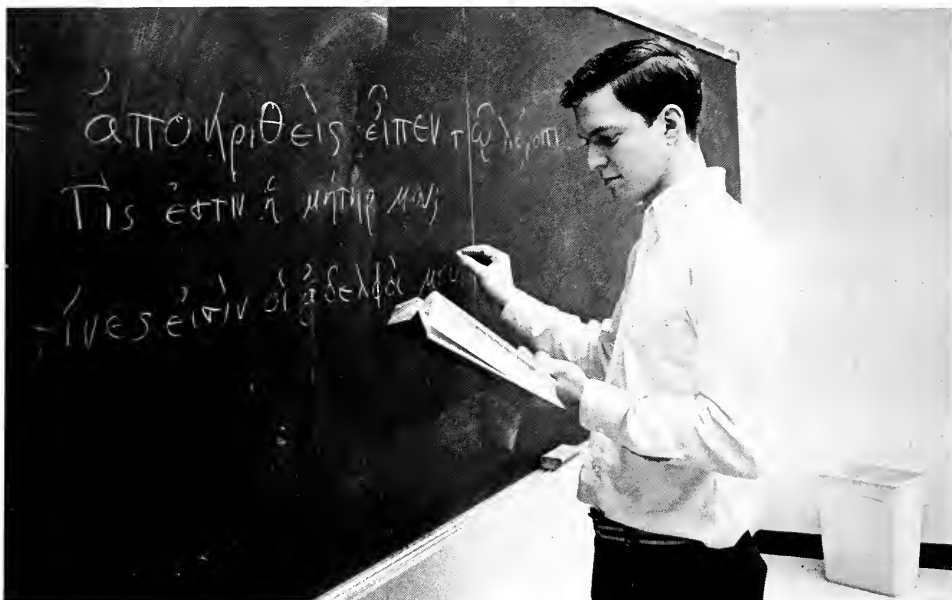 ἀποκριθεὶς εἶπεν τῷ λέγοντι
Τίς ἐστιν ἡ μήτηρ μου;
τίνες εἰσὶν οἱ ἀδελφοὶ μου